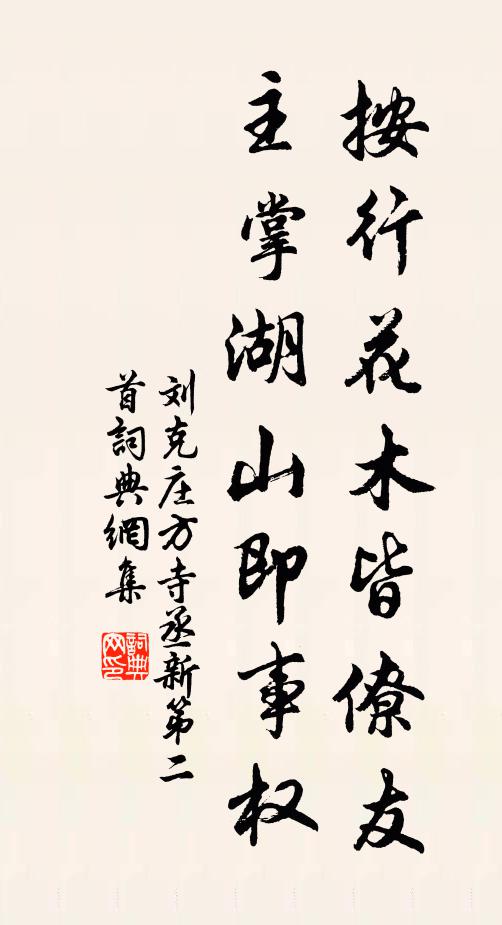 按行花木皆僚友
主掌湖山即事权
刘克庄方寺丞新第二
首詞典網集
詞典
网印